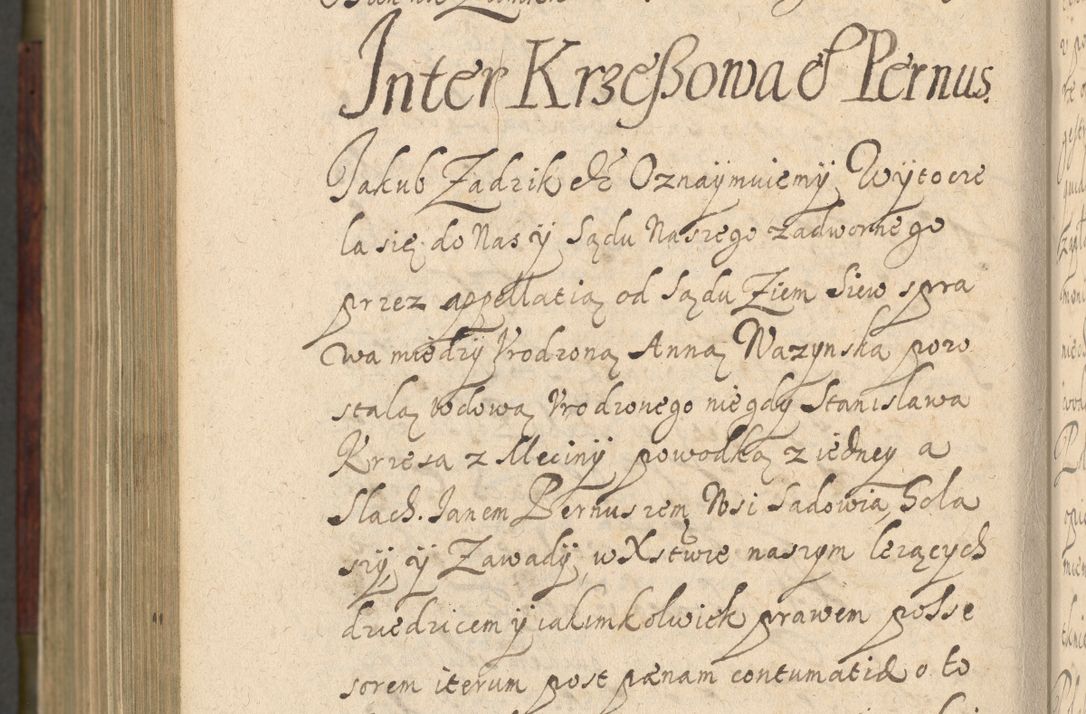 Inter Krzeßowa et Pernus.
Jakub Zadzik etc Oznaÿmuiemÿ Wÿtocze
la się do Nas ÿ Sądu Naszego zadwornego
przez appellatią od Sądu Ziem Siew spra
wa miedzÿ Vrodzoną Anną Wazynską pozo
stalą wdową Vrodzonego niegdy Stanisława
Krzesa z Meciny powodką z iedney a
Slach. Janem Pernuszem Wsi Sadowia, Gola
szÿ, ÿ Zawadÿ, w Xstwie naszym leżących
dziedzicem ÿ iakimkolwiek prawem posse
sorem iterum post pænam contumatiæ o to